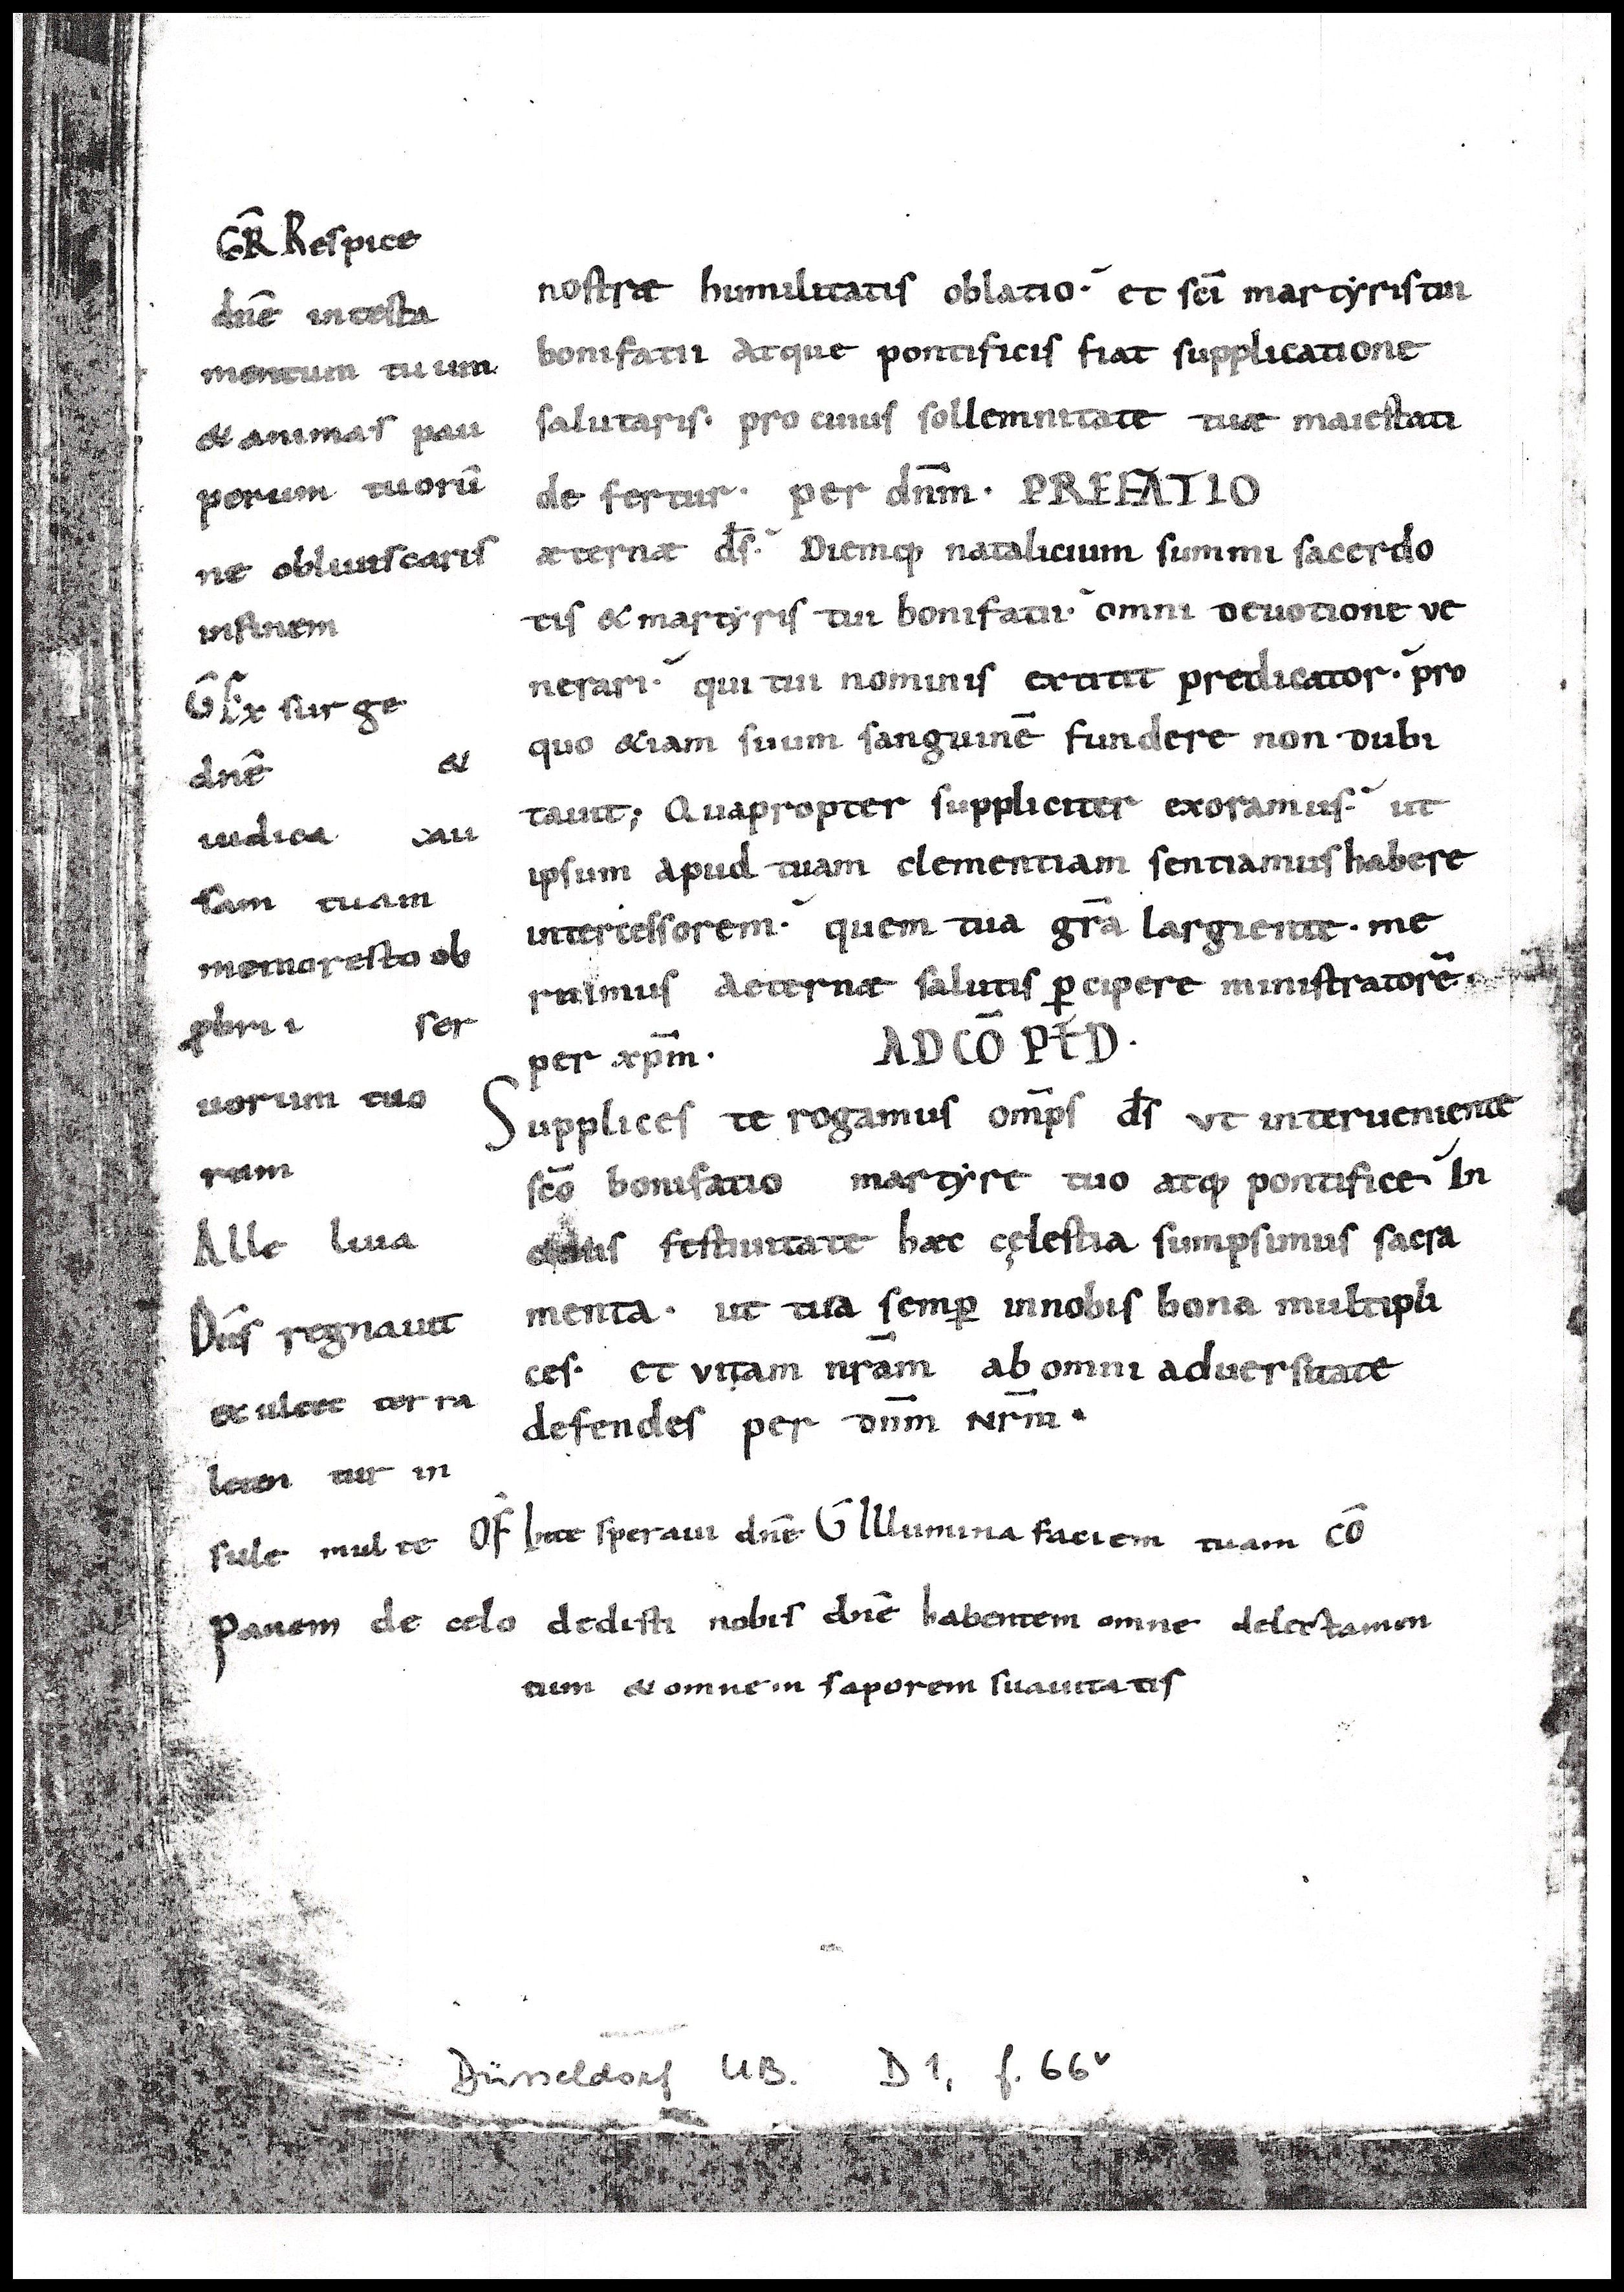 GR Respice
dnē intesta
mentum tuum
& animas pau
perum tuorū
ne obliuiscaris
infinem
G Exsurge
dnē &
iudica cau
sam tuam
memoresto ob
pbrii ser
uorum tuo
rum
Alle luia
Dns regnauit
exultet terra
leten tur in
sule multe
nostræ humilitatis oblatio· et sci martyris tui
bonifatii atque pontificis fiat supplicatione
salutaris· pro cuius sollemnitate tuæ maiestati
de fertur· per dnm· PREFATIO
æternæ ds· Diemq natalicium summi sacerdo
tis & martyris tui bonifatii· omni deuotione ue
nerari· qui tui nominis extitit predicator· pro
quo &iam suum sanguinē fundere non dubi
tauit; Quapropter suppliciter exoramus· ut
ipsum apud tuam clementiam sentiamus habere
intercessorem· quem tua gra largiente· me
ruimus aeternæ salutis pcipere ministratorē·
per xpm· AD CŌ PtD·
Supplices te rogamus omps ds ut interueniente
scō bonifatio martyre tuo atq pontifice In
cuius festiuitate hæc cęlestia sumpsimus sacra
menta· ut tua semp innobis bona multipli
ces· et vitam nram ab omni aduersitate
defendes per dnm Nrm·
OF Inte speraui dnē G Illumina faciem tuam CŌ
Panem de celo dedisti nobis dnē habentem omne delectamen
tum & omnem saporem suauitatis
Düsseldorf UB. D 1, f. 66v